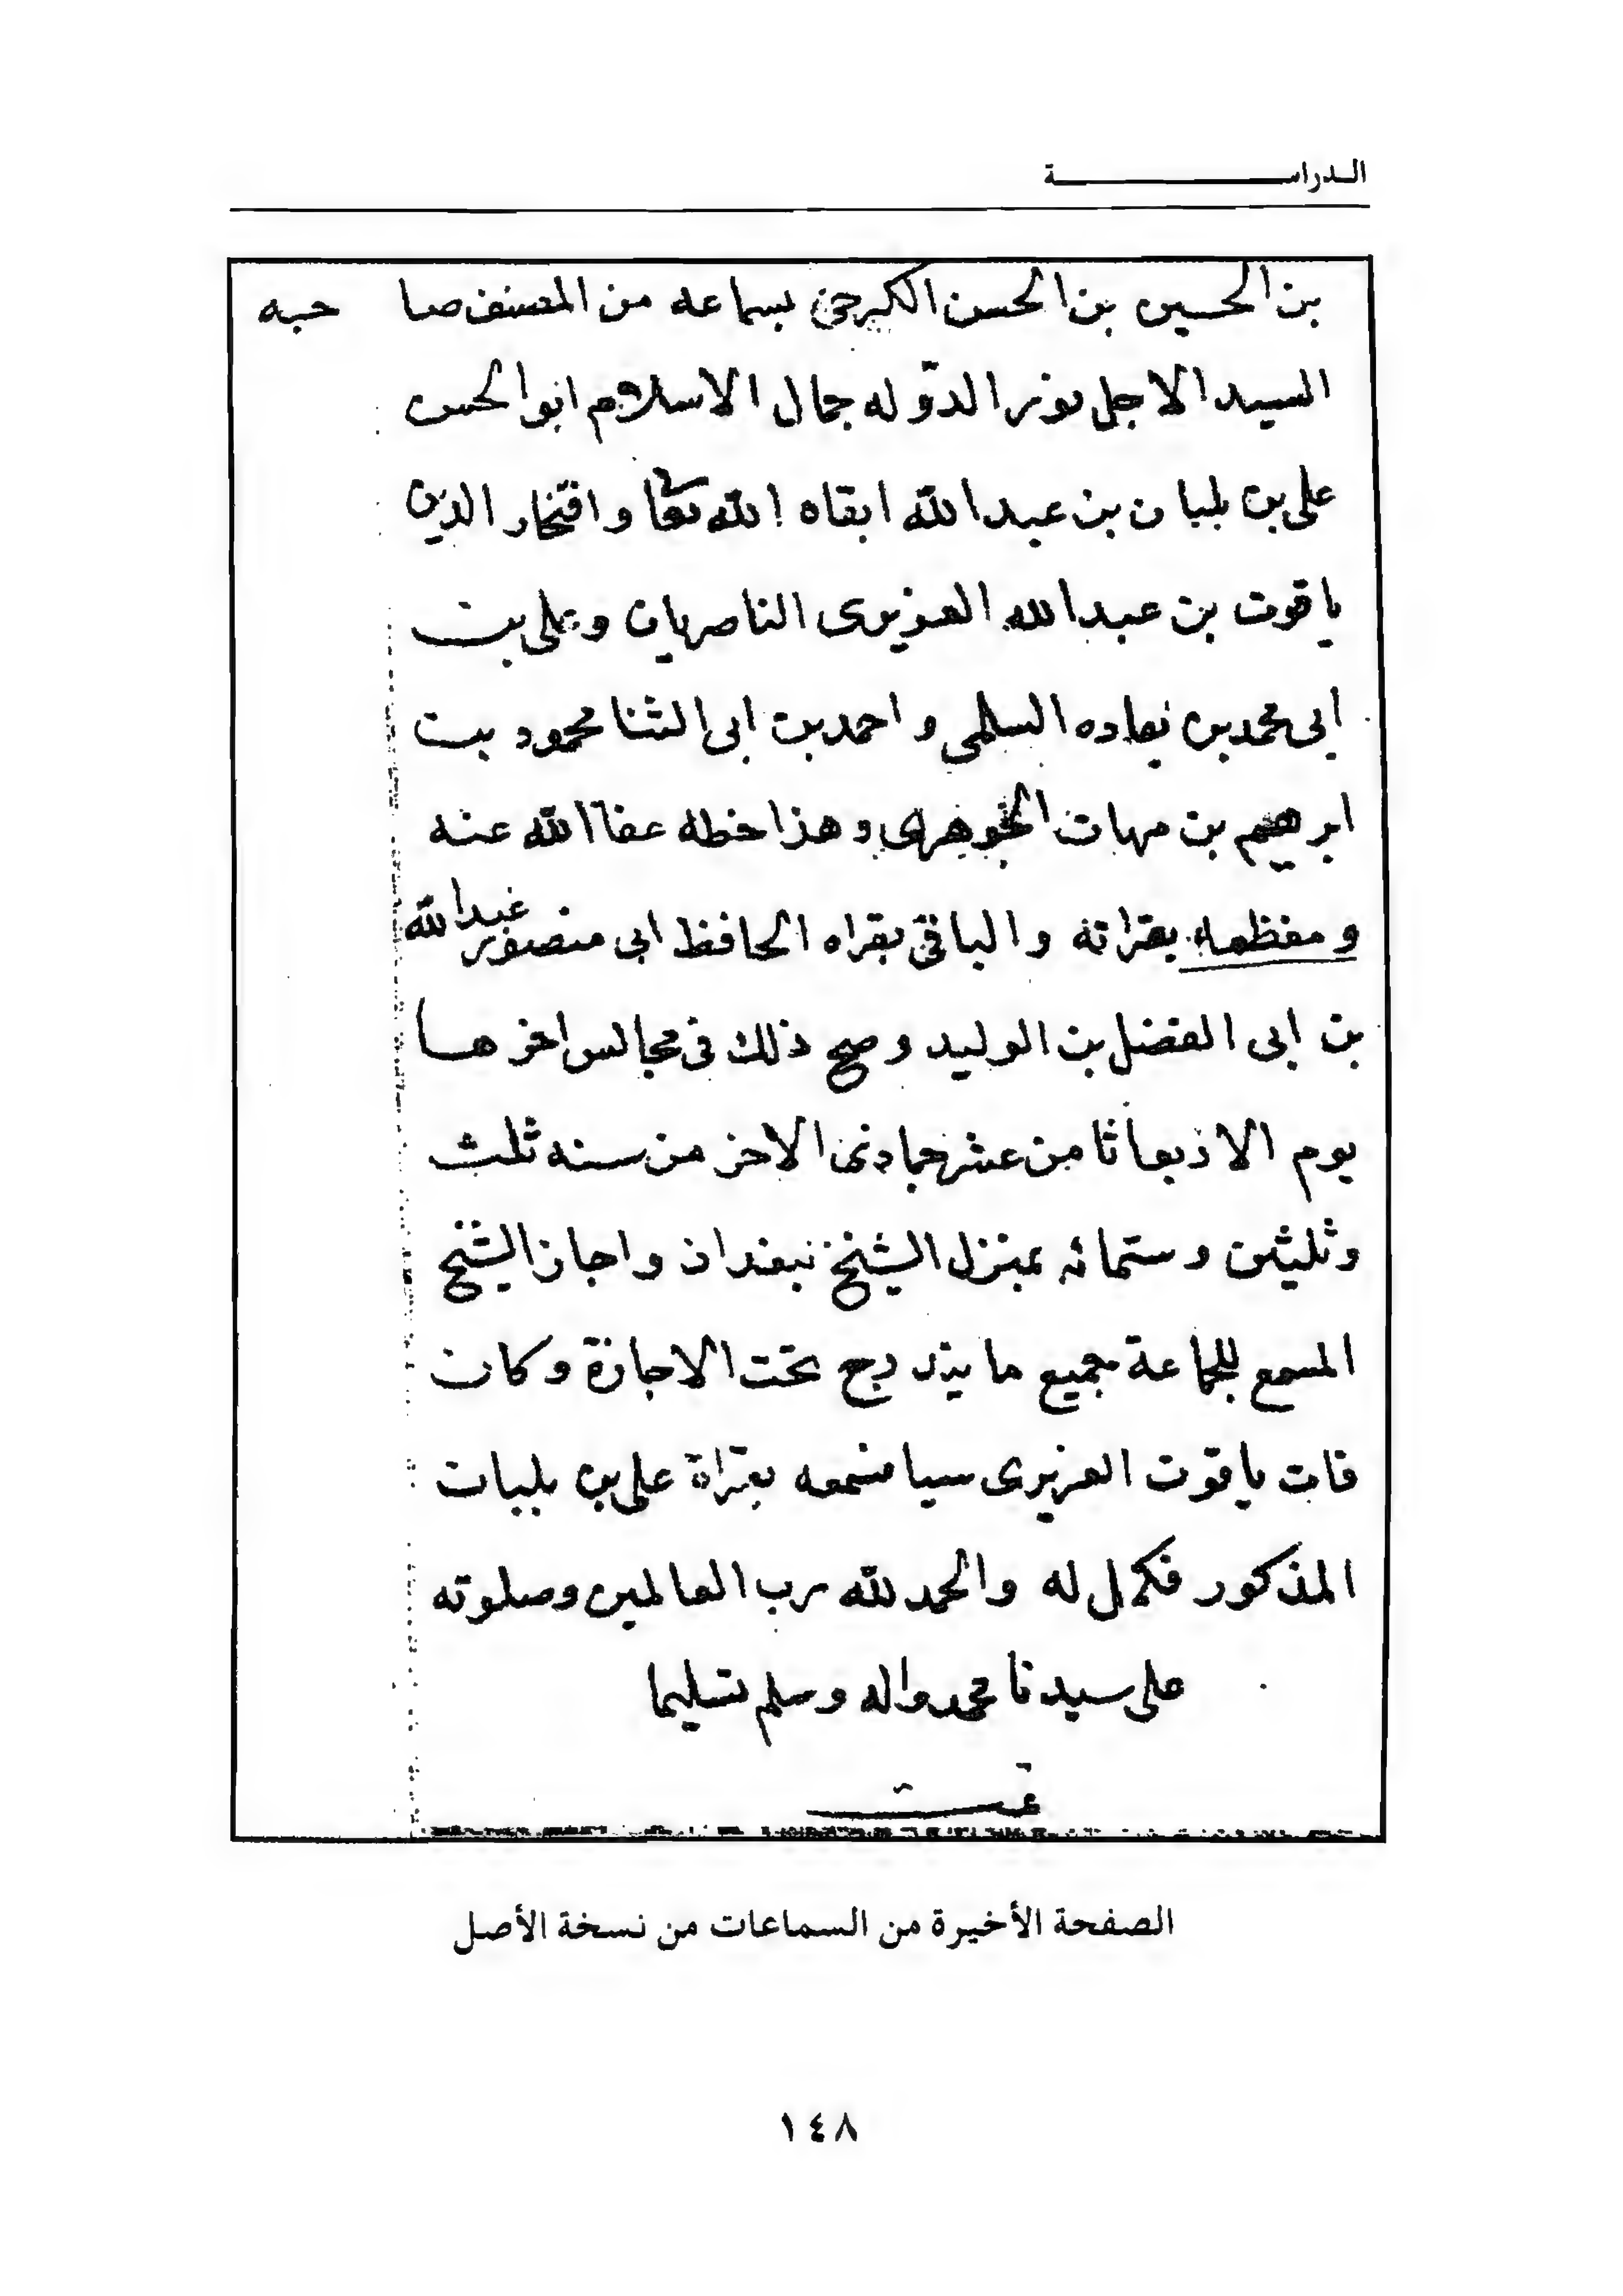 الدراسة
بن الحسين بن الحسن الكرجى بسماعه من المصنف صا حبه
السيد الاجل نور الدوله جمال الاسلام ابو الحسن
على بن بلبان بن عبد الله ابقاه الله تعا وافتخار الدين
ياقوت بن عبد الله العزيزى الناصريان وعلى بن
ابى محمد بن السلمى واحمد بن ابى الثنا محمود بن
ابرهيم بن الجوهرى وهذا خطه عفا الله عنه
ومعظمه بقراته والباقى بقراه الحافظ ابى منصور عبد الله
بن ابى الفضل بن الوليد وصح ذلك فى مجالس اخرها
يوم الاربعا ثامن عشر جمادى الاخر من سنه ثلث
وثلثين وستمائه بمنزل الشيخ ببغداد واجاز الشيخ
المسمع للجماعة جميع ما يندرج تحت الاجازة وكان
فات ياقوت العزيزى سيا فسمعه بقراة على بن بلبان
المذكور فكمل له والحمد لله رب العالمين وصلوته
على سيدنا محمد واله وسلم تسليما
تمت
الصفحة الأخيرة من السماعات من نسخة الأصل
١٤٨